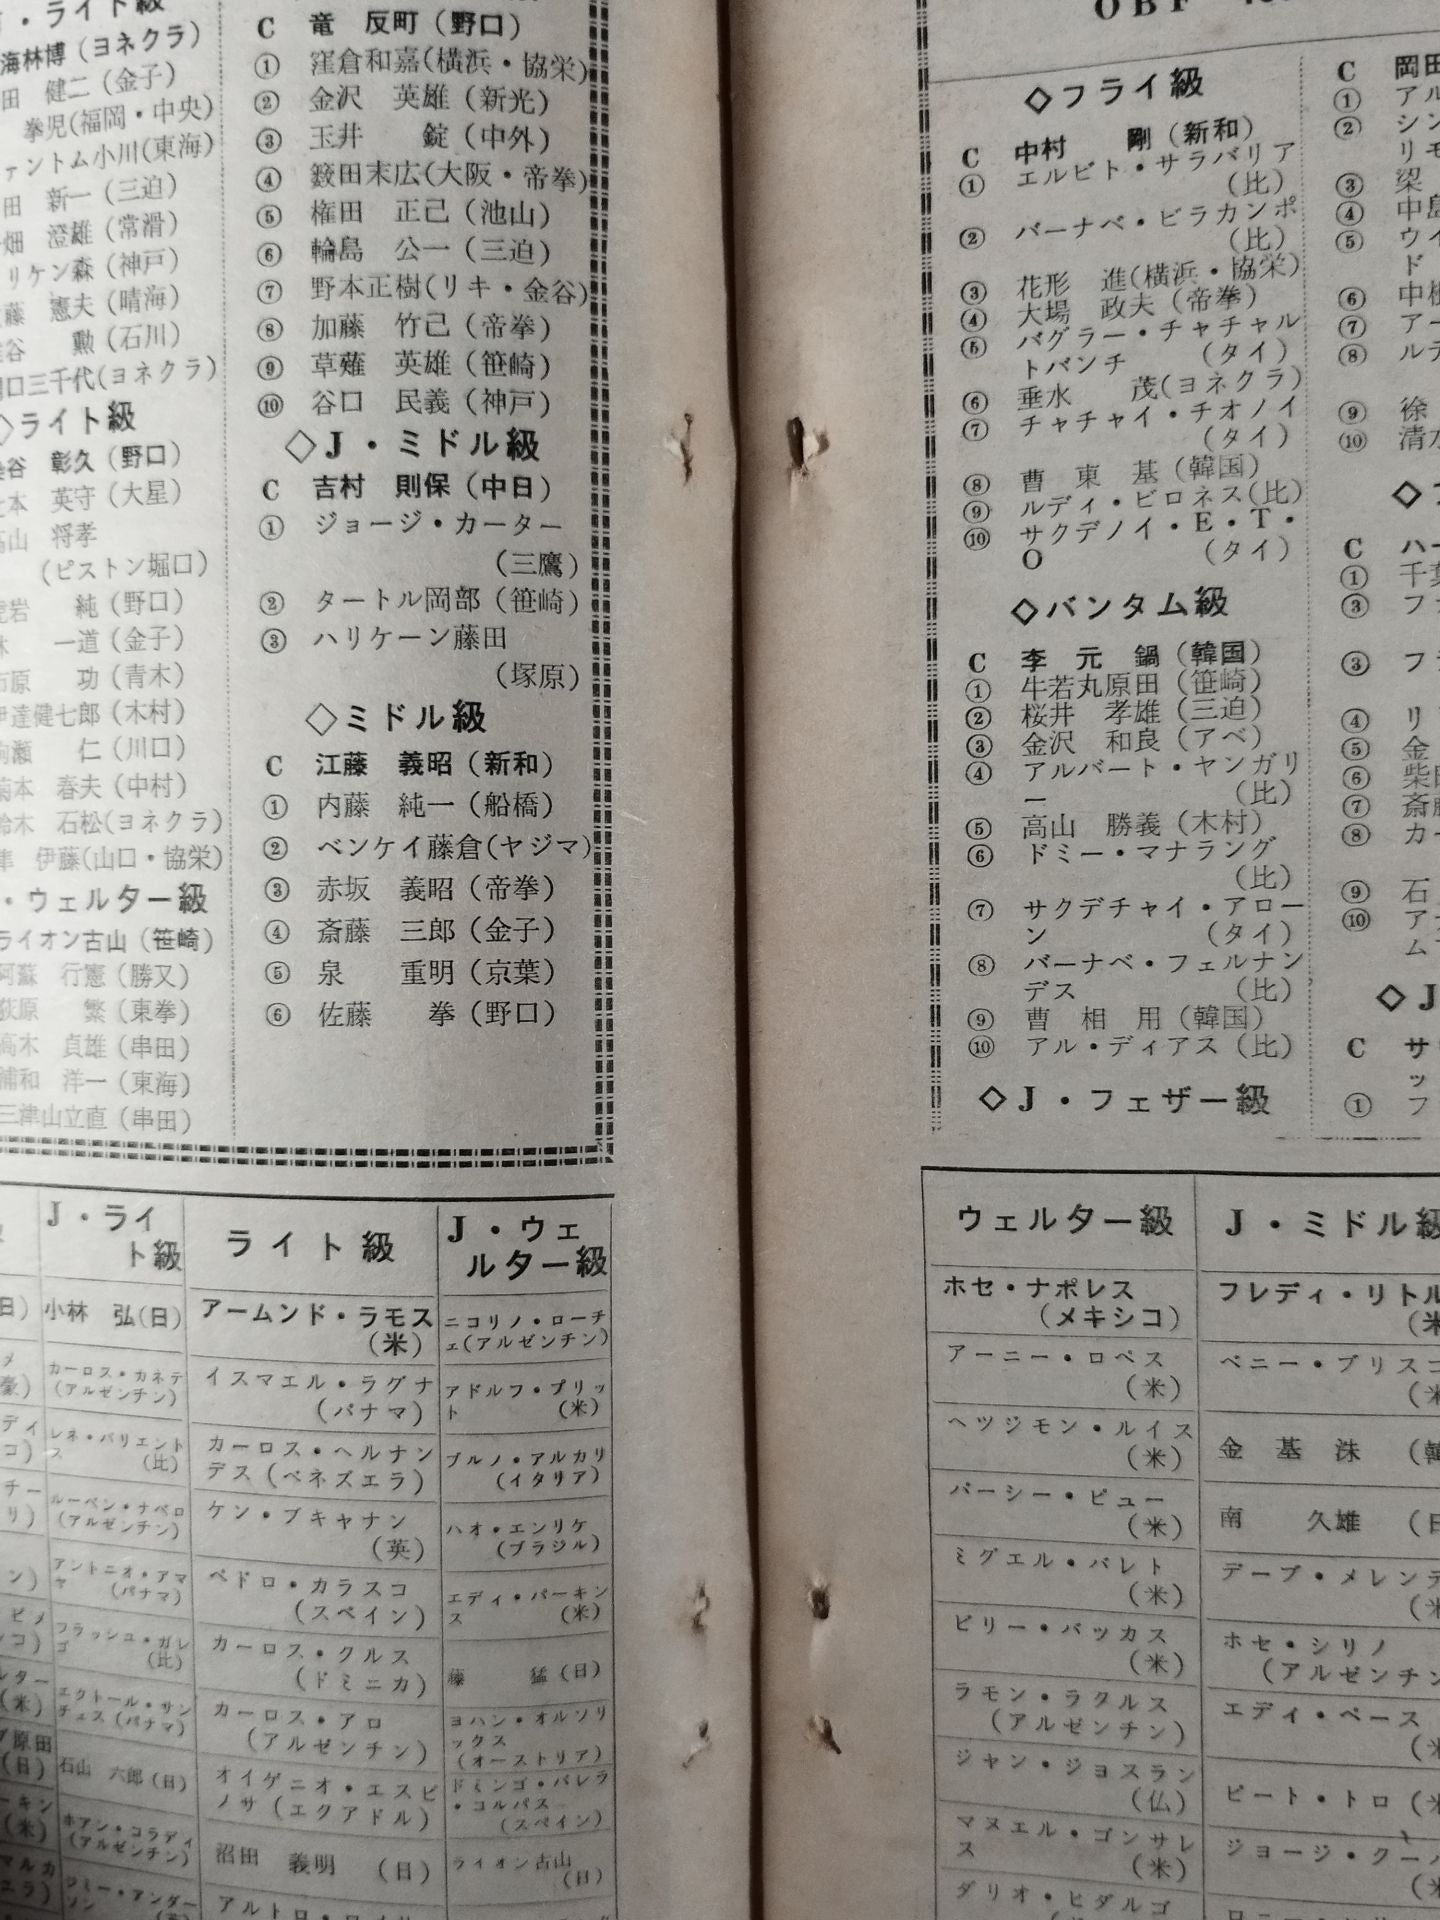 J・ライト級
海林博（ヨネクラ）
田　健二（金子）
拳児（福岡・中央）
ァントム小川（東海）
田　新一（三迫）
畑　澄雄（常滑）
リケン森（神戸）
藤　憲夫（晴海）
谷　　勲（石川）
口三千代（ヨネクラ）
◇ライト級
谷　彰久（野口）
本　英守（大星）
高山　将孝
（ピストン堀口）
岩　　純（野口）
一道（金子）
原　　功（青木）
伊達健七郎（木村）
瀬　　仁（川口）
本　春夫（中村）
鈴木　石松（ヨネクラ）
隼　伊藤（山口・協栄）
・ウェルター級
ライオン古山（笹崎）
阿蘇　行憲（勝又）
荻原　　繁（東拳）
高木　貞雄（串田）
浦和　洋一（東海）
三津山立直（串田）
C　竜　反町（野口）
①　窪倉和嘉（横浜・協栄）
②　金沢　英雄（新光）
③　玉井　　錠（中外）
④　籔田末広（大阪・帝拳）
⑤　権田　正己（池山）
⑥　輪島　公一（三迫）
⑦　野本正樹（リキ・金谷）
⑧　加藤　竹己（帝拳）
⑨　草薙　英雄（笹崎）
⑩　谷口　民義（神戸）
◇J・ミドル級
C　吉村　則保（中日）
①　ジョージ・カーター
（三鷹）
②　タートル岡部（笹崎）
③　ハリケーン藤田
（塚原）
◇ミドル級
C　江藤　義昭（新和）
①　内藤　純一（船橋）
②　ベンケイ藤倉（ヤジマ）
③　赤坂　義昭（帝拳）
④　斎藤　三郎（金子）
⑤　泉　　重明（京葉）
⑥　佐藤　　拳（野口）
OBF
◇フライ級
C　中村　　剛（新和）
①　エルビト・サラバリア
（比）
②　バーナベ・ビラカンポ
（比）
③　花形　進（横浜・協栄）
④　大場　政夫（帝拳）
⑤　バグラー・チャチャル
トバンチ　（タイ）
⑥　垂水　　茂（ヨネクラ）
⑦　チャチャイ・チオノイ
（タイ）
⑧　曹　東　基（韓国）
⑨　ルディ・ビロネス（比）
⑩　サクデノイ・E・T・
O　（タイ）
◇バンタム級
C　李　元　鍋（韓国）
①　牛若丸原田（笹崎）
②　桜井　孝雄（三迫）
③　金沢　和良（アベ）
④　アルバート・ヤンガリ
ー　（比）
⑤　高山　勝義（木村）
⑥　ドミー・マナラング
（比）
⑦　サクデチャイ・アロー
ン　（タイ）
⑧　バーナベ・フェルナン
デス　（比）
⑨　曹　相　用（韓国）
⑩　アル・ディアス（比）
◇J・フェザー級
C　岡田
①　アル
②　シン
リモ
③　梁
④　中島
⑤　ウイ
ド
⑥　中根
⑦　アー
⑧　ルデ
⑨　徐
⑩　清水
◇フ
C　ハー
①　千葉
③　フ
③　フ
④　リ
⑤　金
⑥　柴田
⑦　斎藤
⑧　カー
⑨　石
⑩　ア
ム
◇J
C　サ
ッ
①　フ
J・ライ
ト級
小林　弘（日）
カーロス・カネテ
（アルゼンチン）
レネ・バリエント
ス　（比）
ルーベン・ナベロ
（アルゼンチン）
アントニオ・アマ
ヤ　（パナマ）
フラッシュ・ガレ
ゴ　（比）
エクトール・サン
チェス（パナマ）
石山　六郎（日）
ホアン・コラディ
（アルゼンチン）
ジミー・アンダー
ソン　（英）
ライト級
アームンド・ラモス
（米）
イスマエル・ラグナ
（パナマ）
カーロス・ヘルナン
デス（ベネズエラ）
ケン・ブキャナン
（英）
ペドロ・カラスコ
（スペイン）
カーロス・クルス
（ドミニカ）
カーロス・アロ
（アルゼンチン）
オイゲニオ・エスピ
ノサ（エクアドル）
沼田　義明　（日）
J・ウェ
ルター級
ニコリノ・ローチ
ェ（アルゼンチン）
アドルフ・プリッ
ト　（米）
ブルノ・アルカリ
（イタリア）
ハオ・エンリケ
（ブラジル）
エディ・パーキン
ス　（米）
藤　　猛（日）
ヨハン・オルソリ
ックス
（オーストリア）
ドミンゴ・バレラ
・コルパス
（スペイン）
ライオン古山
（日）
ウェルター級
ホセ・ナポレス
（メキシコ）
アーニー・ロペス
（米）
ヘツジモン・ルイス
（米）
パーシー・ピュー
（米）
ミグエル・バレト
（米）
ビリー・バッカス
（米）
ラモン・ラクルス
（アルゼンチン）
ジャン・ジョスラン
（仏）
マヌエル・ゴンサレ
ス　（米）
ダリオ・ヒダルゴ
J・ミドル級
フレディ・リトル
（米
ベニー・ブリスコ
（米
金　基　洙　（韓
南　　久雄　（日
デーブ・メレンデ
（米
ホセ・シリノ
（アルゼンチン
エディ・ペース
（米
ピート・トロ（米
ジョージ・クーパ
（米